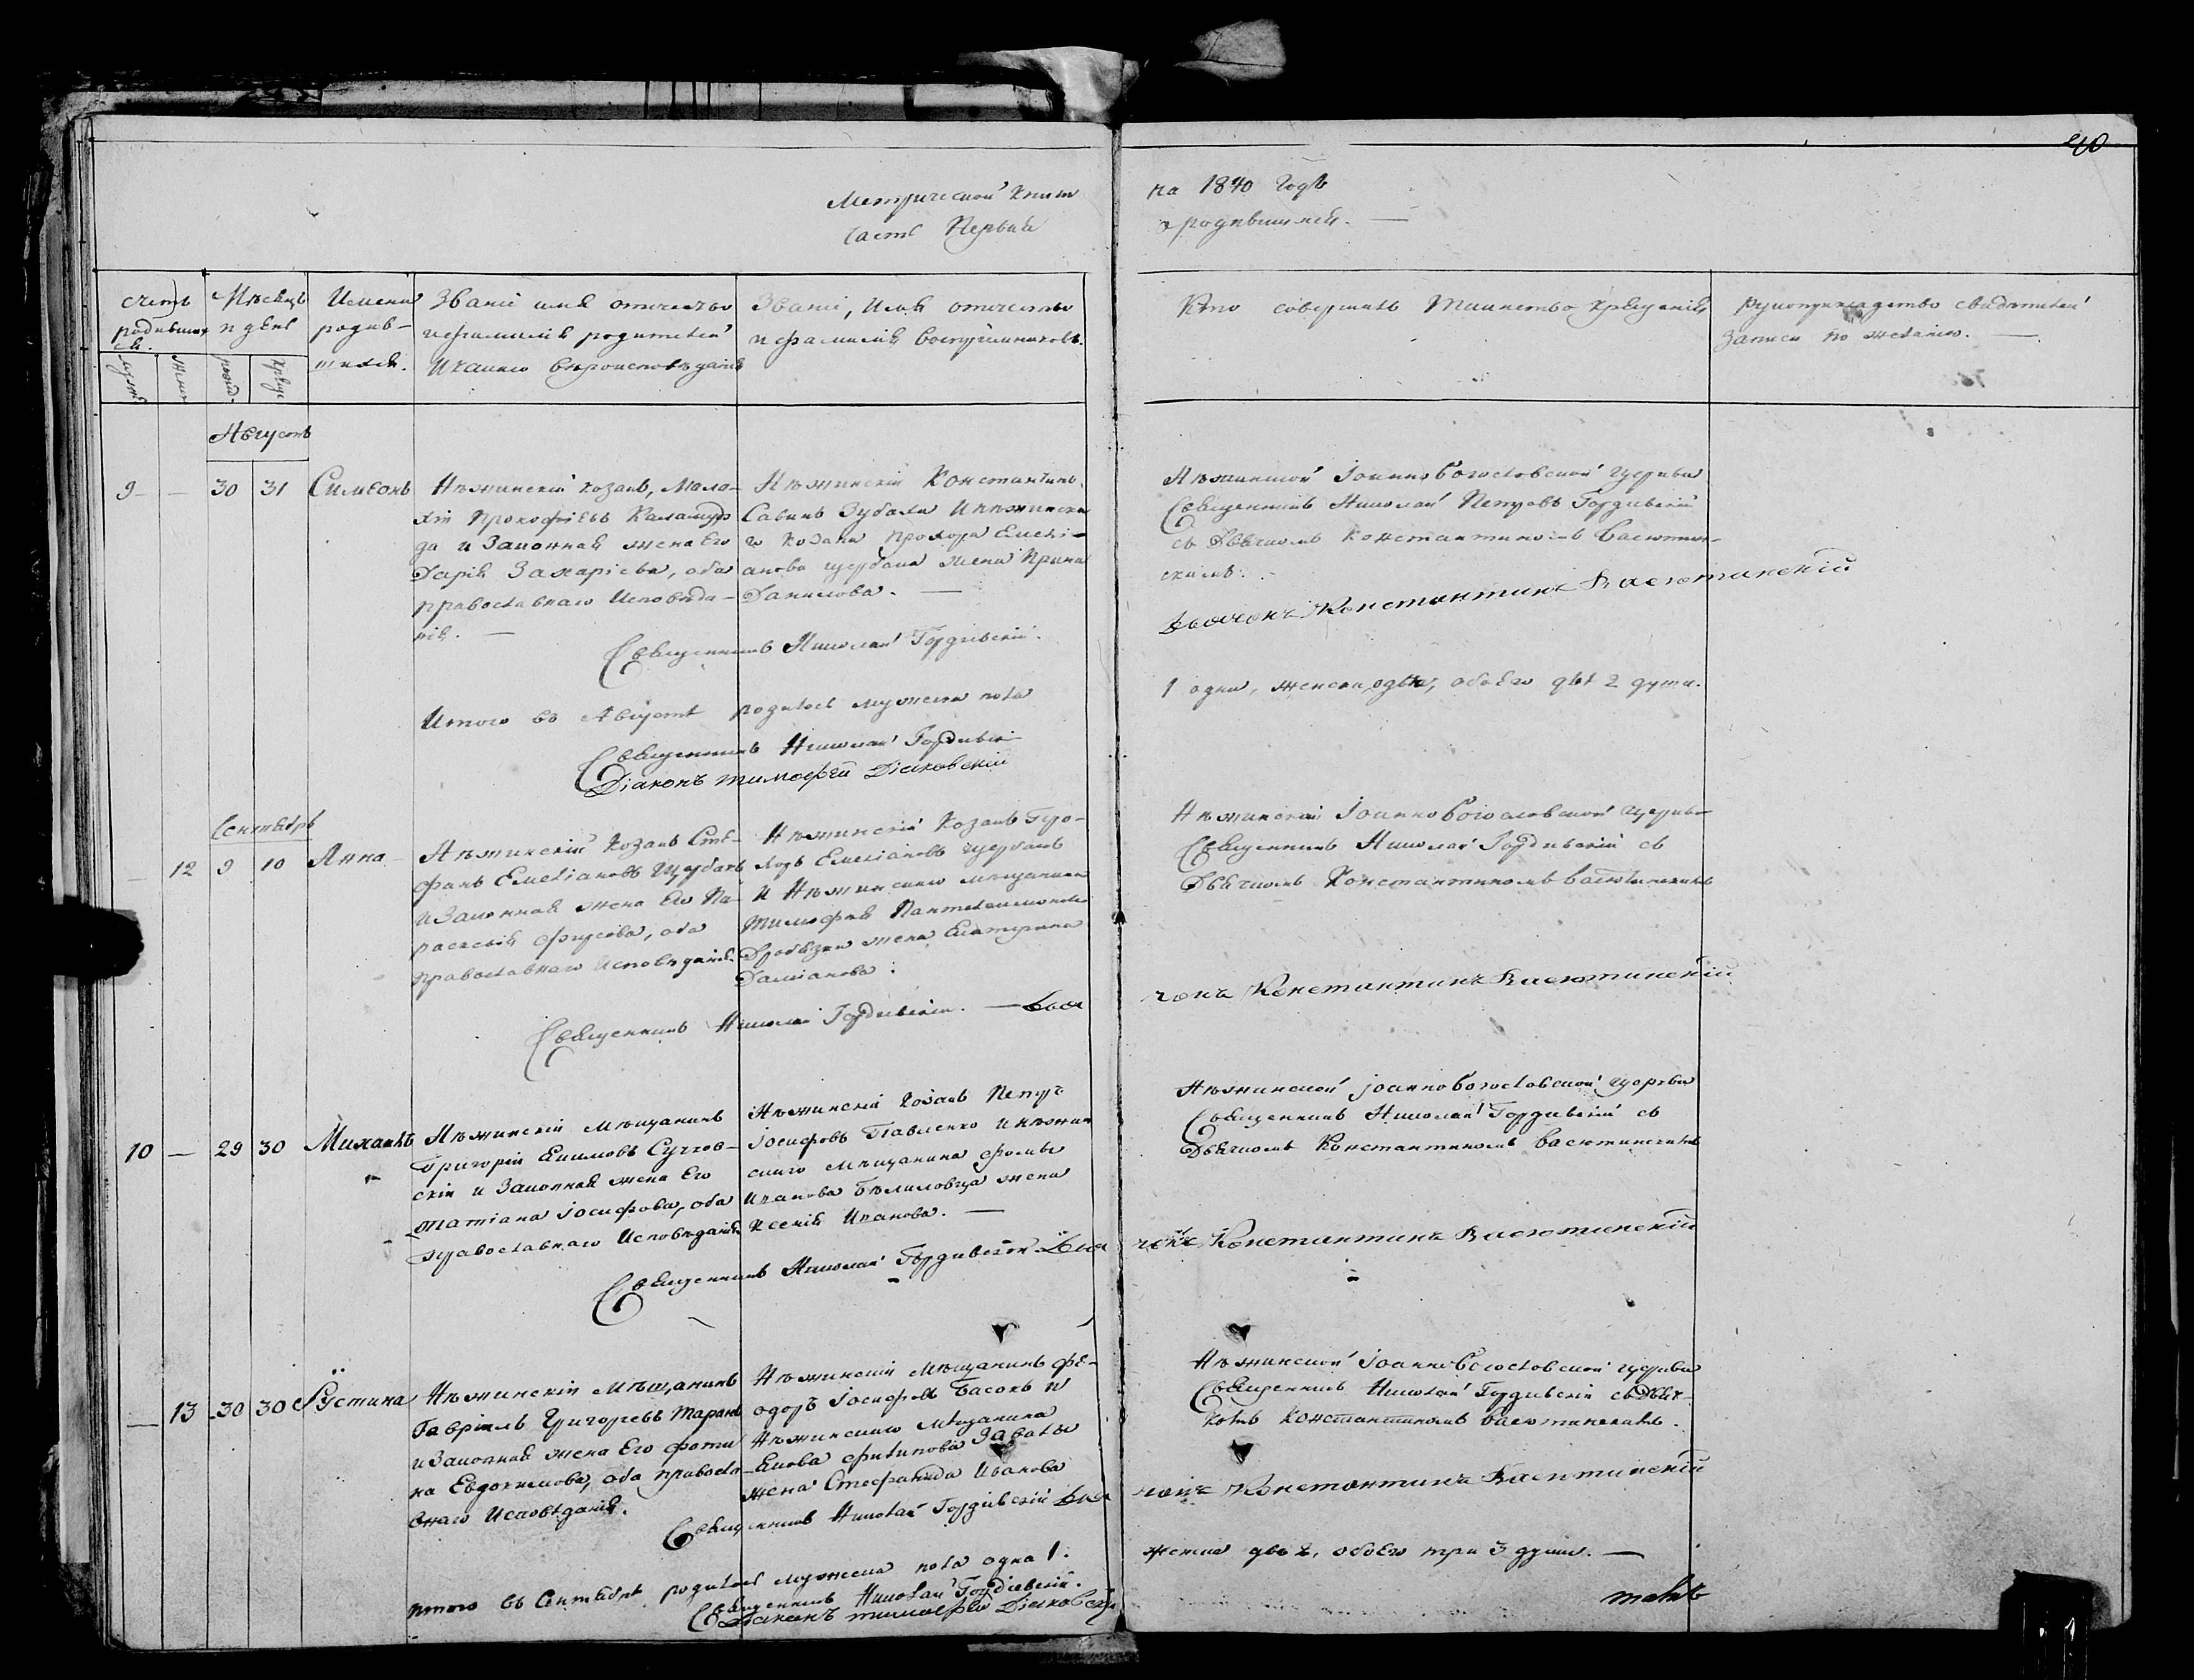 40
Метрической книги
Часть Первая
на 1840 Годъ
о родившихся.
счетъ родившихся.
Мѣсяцъ и день
Имена родив-
шихся.
Званіе имя отчество
и фамилія родителей
и какого вѣроисповѣданія
Званіе, Имя отчество
и фамилія воспріемниковъ.
Кто совершалъ Таинство крещенія
Рукоприкладство свидѣтелей
записи по желанію.
Муж.
Жен.
рожд.
крещ.
Августъ
9 — 30 31 Симеонъ
Нѣжинскій козакъ, Мала-
хій Прокофіевъ
да и Законная жена Его
Дарія Захаріева, оба
православнаго Исповѣда-
нія.
Нѣжинскій Константинъ
Савинъ Зубаха И нѣжинска
го козака Прохора Емелі-
анова Щербака жена Ирина
Данилова.
Нѣжинской Іоанно Богословской Церкви
Священникъ Николай Петровъ Гордіевскій
съ Дьячкомъ Константиномъ Васютин-
скимъ.
Дьячокъ Константинъ Васютинскій
Священникъ Николай Гордіевскій.
Итого въ Августѣ родилось мужеска пола
1 одна, женска одна, обоего двѣ 2 души.
Священникъ Николай Гордіевскій
Діаконъ Тимофей Діаковскій
Сентябрь
— 12 9 10 Анна
Нѣжинскій Козакъ Сте-
фанъ Емеліановъ Щербакъ
и Законная жена Его Па-
раскевія Фирсова, оба
православнаго Исповѣданія.
Нѣжинскій Козакъ Про-
хоръ Емеліановъ Щербакъ
и Нѣжинскаго мѣщанина
Тимофея Пантелеимонова
жена Екатерина
Даміанова.
Нѣжинской Іоанно Богословской Церкви
Священникъ Николай Гордіевскій съ
Дьячкомъ Константиномъ Васютинскимъ
Священникъ Николай Гордіевскій. — Дья
чокъ Константинъ Васютинскій
10 — 29 30 Михаилъ
Нѣжинскій мѣщанинъ
Григорій Екимовъ Сучков-
скій и Законная жена Его
Татіана Іосифова, оба
православнаго Исповѣданія
Нѣжинскій Козакъ Петръ
Іосифовъ Павленко и нѣжин
скаго мѣщанина Фомы
Иванова Бѣлиловца жена
Ксенія Иванова.
Нѣжинской Іоанно Богословской Церкви
Священникъ Николай Гордіевскій съ
Дьячкомъ Константиномъ Васютинскимъ
Священникъ Николай Гордіевскій Дья
чокъ Константинъ Васютинскій
— 13 30 30 Іустина
Нѣжинскій мѣщанинъ
Гавріилъ Григорьевъ Таранъ
и Законная жена Его Фоти
на Евдокимова, оба правосла-
внаго Исповѣданія.
Нѣжинскій Мѣщанинъ Фе-
одоръ Іосифовъ Басокъ и
Нѣжинскаго мѣщанина
Якова Филипова Завалы
жена Стефанида Иванова
Нѣжинской Іоанно Богословской Церкви
Священникъ Николай Гордіевскій съ Дьяч-
комъ Константиномъ Васютинскимъ.
Священникъ Николай Гордіевскій Дья
чокъ Константинъ Васютинскій
Итого въ Сентябрѣ родилось мужеска пола одна 1.
женска двѣ 2, обоего три 3 души.
Священникъ Николай Гордіевскій.
Діаконъ Тимофей Діаковскій